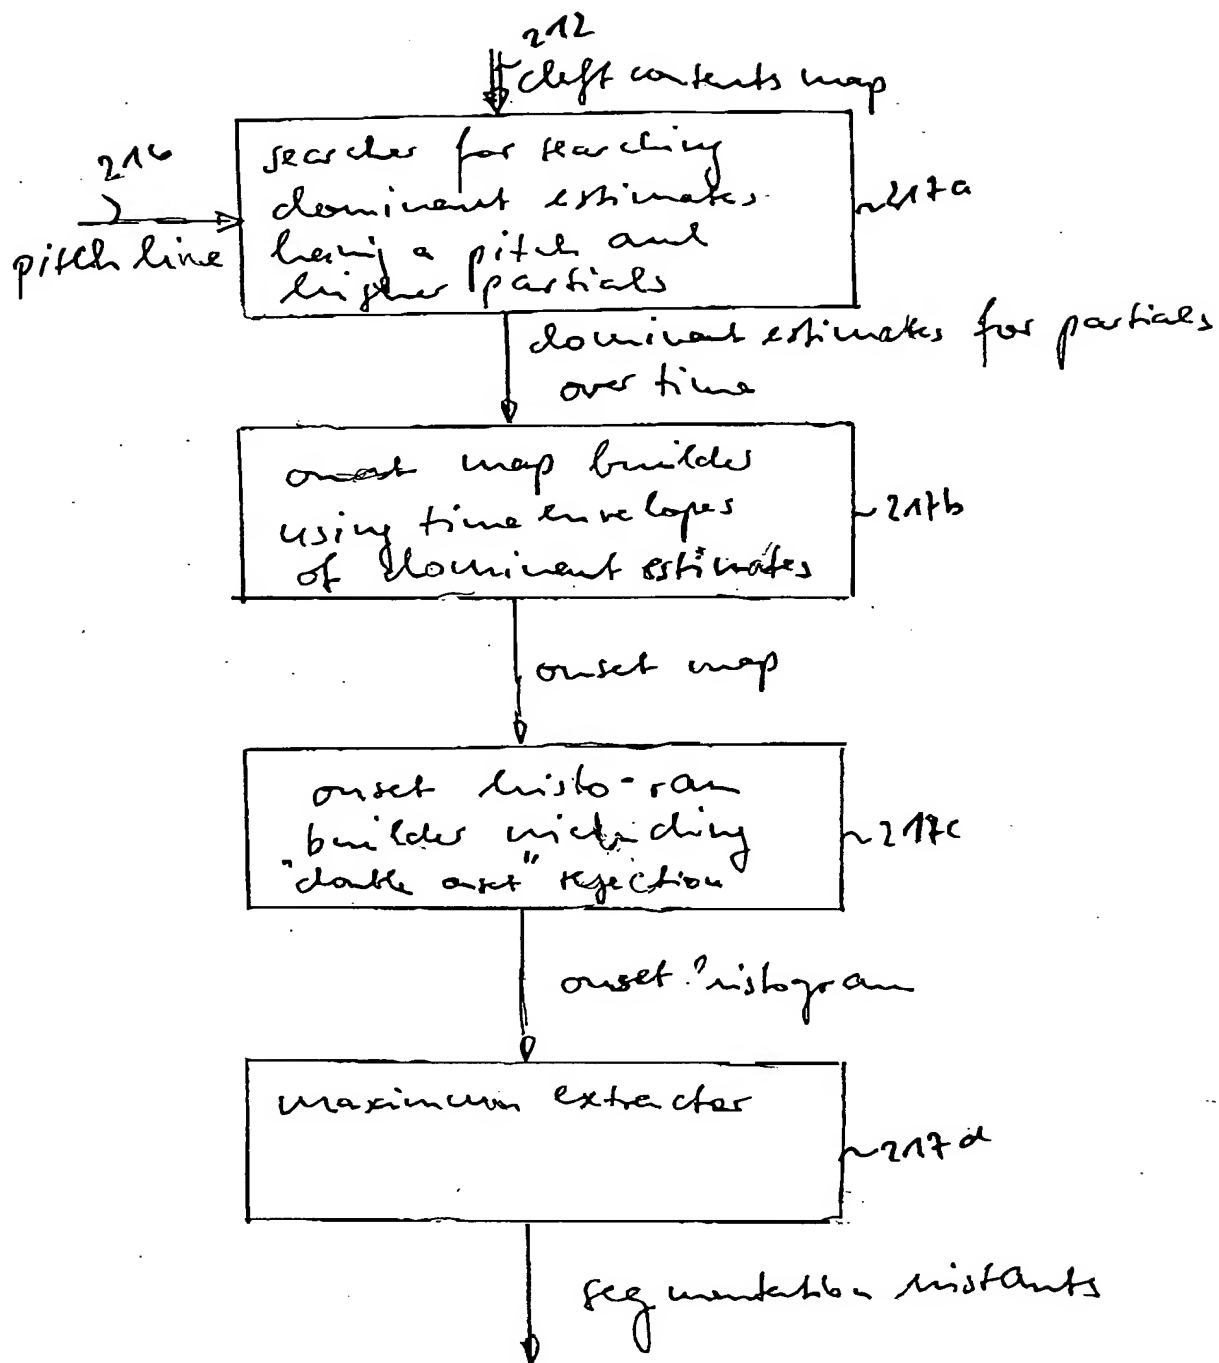 212
cleft contents map
216
pitch line
searcher for searching
dominant estimates
having a pitch and
higher partials
~217a
dominant estimates for partials
over time
onset map builder
using time envelopes
of dominant estimates
~217b
onset map
onset histo-ram
builder including
"double onset" rejection
~217c
onset histogram
maximum extractor
~217d
segmentation instants